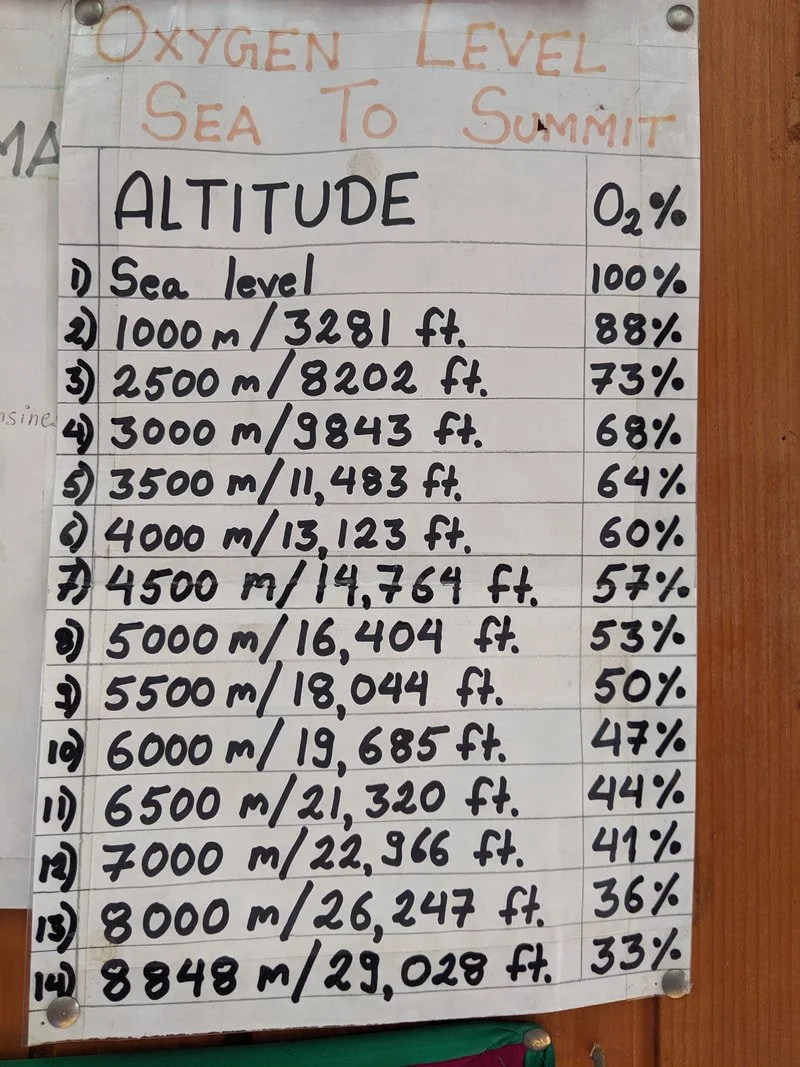 OXYGEN LEVEL
SEA TO SUMMIT
MA
ALTITUDE O₂%
1) Sea level 100%
2) 1000 m/3281 ft. 88%
3) 2500 m/8202 ft. 73%
4) 3000 m/9843 ft. 68%
5) 3500 m/11,483 ft. 64%
6) 4000 m/13,123 ft. 60%
7) 4500 m/14,764 ft. 57%
8) 5000 m/16,404 ft. 53%
9) 5500 m/18,044 ft. 50%
10) 6000 m/19,685 ft. 47%
11) 6500 m/21,320 ft. 44%
12) 7000 m/22,966 ft. 41%
13) 8000 m/26,247 ft. 36%
14) 8848 m/29,028 ft. 33%